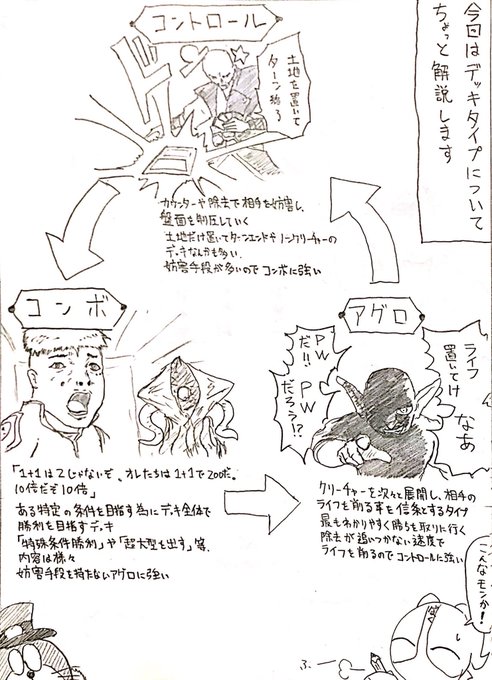 今回はデッキタイプについて
ちょっと解説します
コントロール
ドン
土地を置いて
ターン終了
カウンターや除去で相手を妨害し、
盤面を制圧していく
土地だけ置いてターンエンドやノンクリーチャーの
デッキなんかも多い.
妨害手段が多いのでコンボに強い
コンボ
「1+1は2じゃないぞ、オレたちは1+1で200だ。
10倍だぞ10倍」
ある特定の条件を目指す為にデッキ全体で
勝利を目指すデッキ
「特殊条件勝利」や「超大型を出す」等、
内容は様々
妨害手段を持たないアグロに強い
アグロ
ライフ
置いてけ
なあ
PW
だ!!
PW
だろう!?
クリーチャーを次々と展開し、相手の
ライフを削る事を信条とするタイプ
最もわかりやすく勝ちを取りに行く
除去が追いつかない速度で
ライフを削るのでコントロールに強い
こんなモンか!
3.